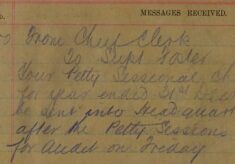 MESSAGES RECEIVED.
From Chief Clerk
To Supt
Your Petty Sessional
for year ended 31st
be sent into Headquart
after the Petty Sessions
for audit on Friday